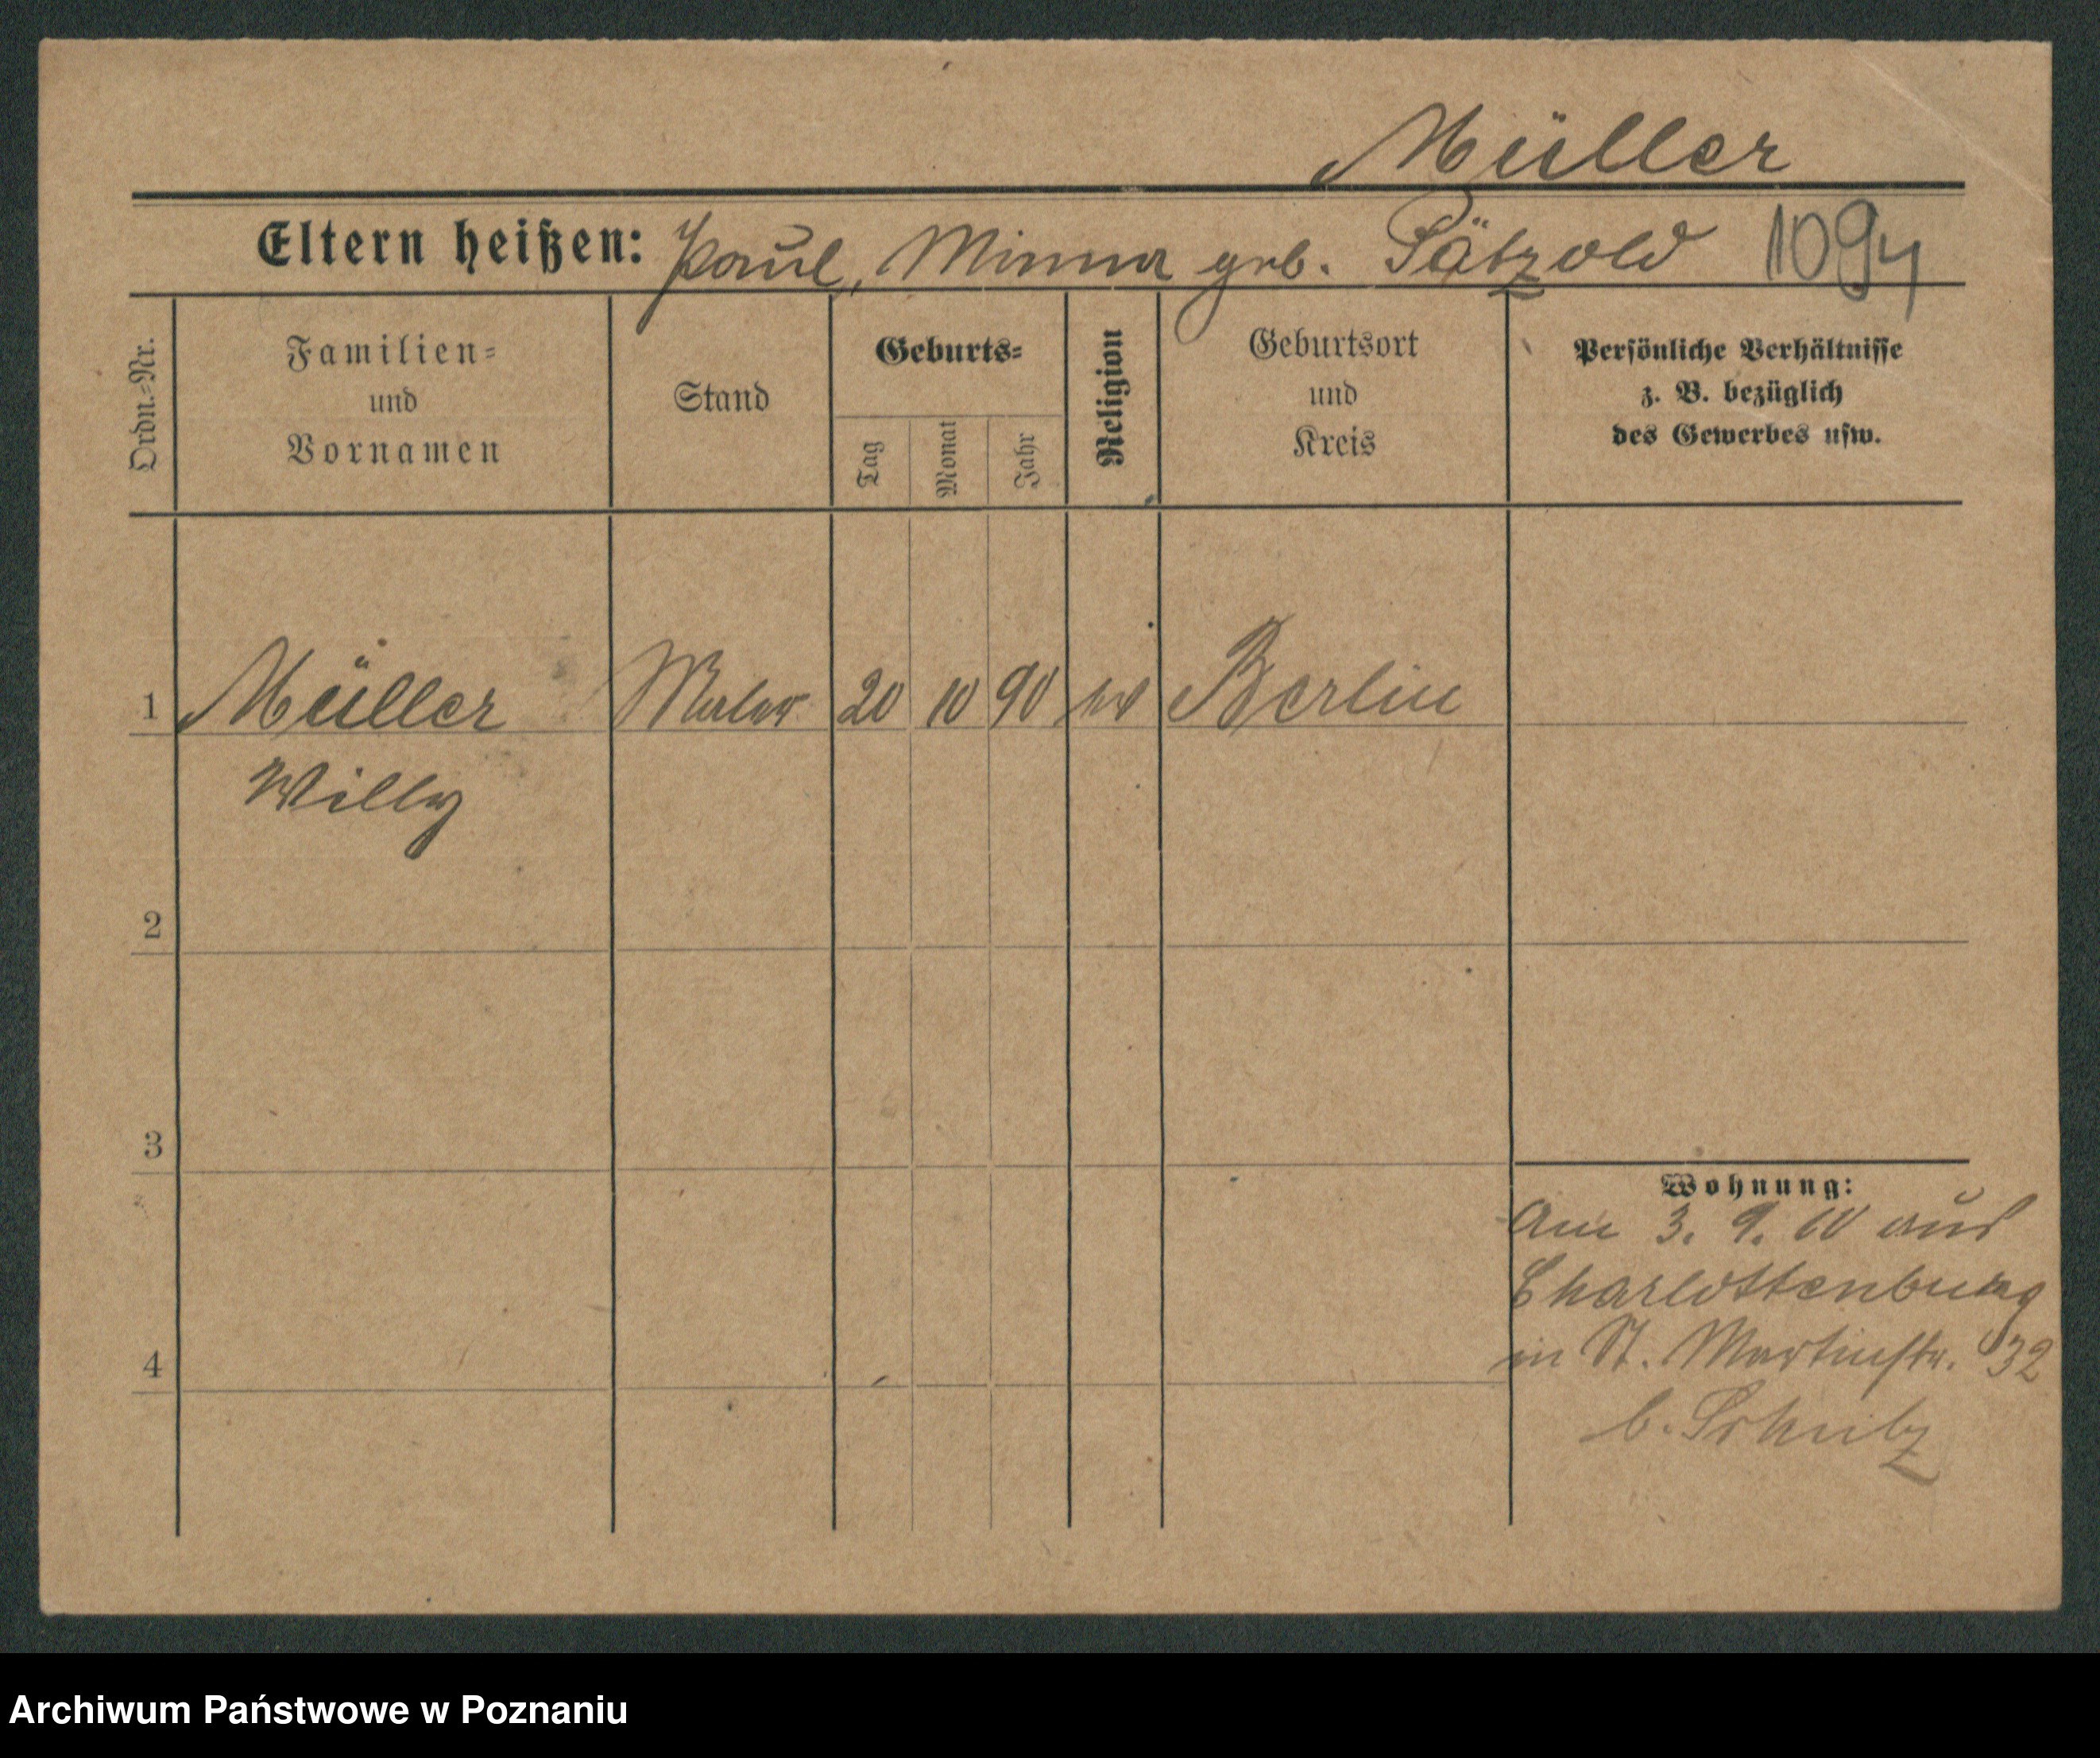 Müller
Eltern heißen: Paul, Minna geb. Pätzold 1094
Ordn.-Nr.
Familien-
und
Vornamen
Stand
Geburts-
Tag
Monat
Jahr
Religion
Geburtsort
und
Kreis
Persönliche Verhältnisse
z. B. bezüglich
des Gewerbes usw.
1 Müller Maler 20 10 90 ev Berlin
Willy
2
3
Wohnung:
Am 3. 9. 10 aus
Charlottenburg
in St. Martinstr. 32
4
b. Schulz
Archiwum Państwowe w Poznaniu